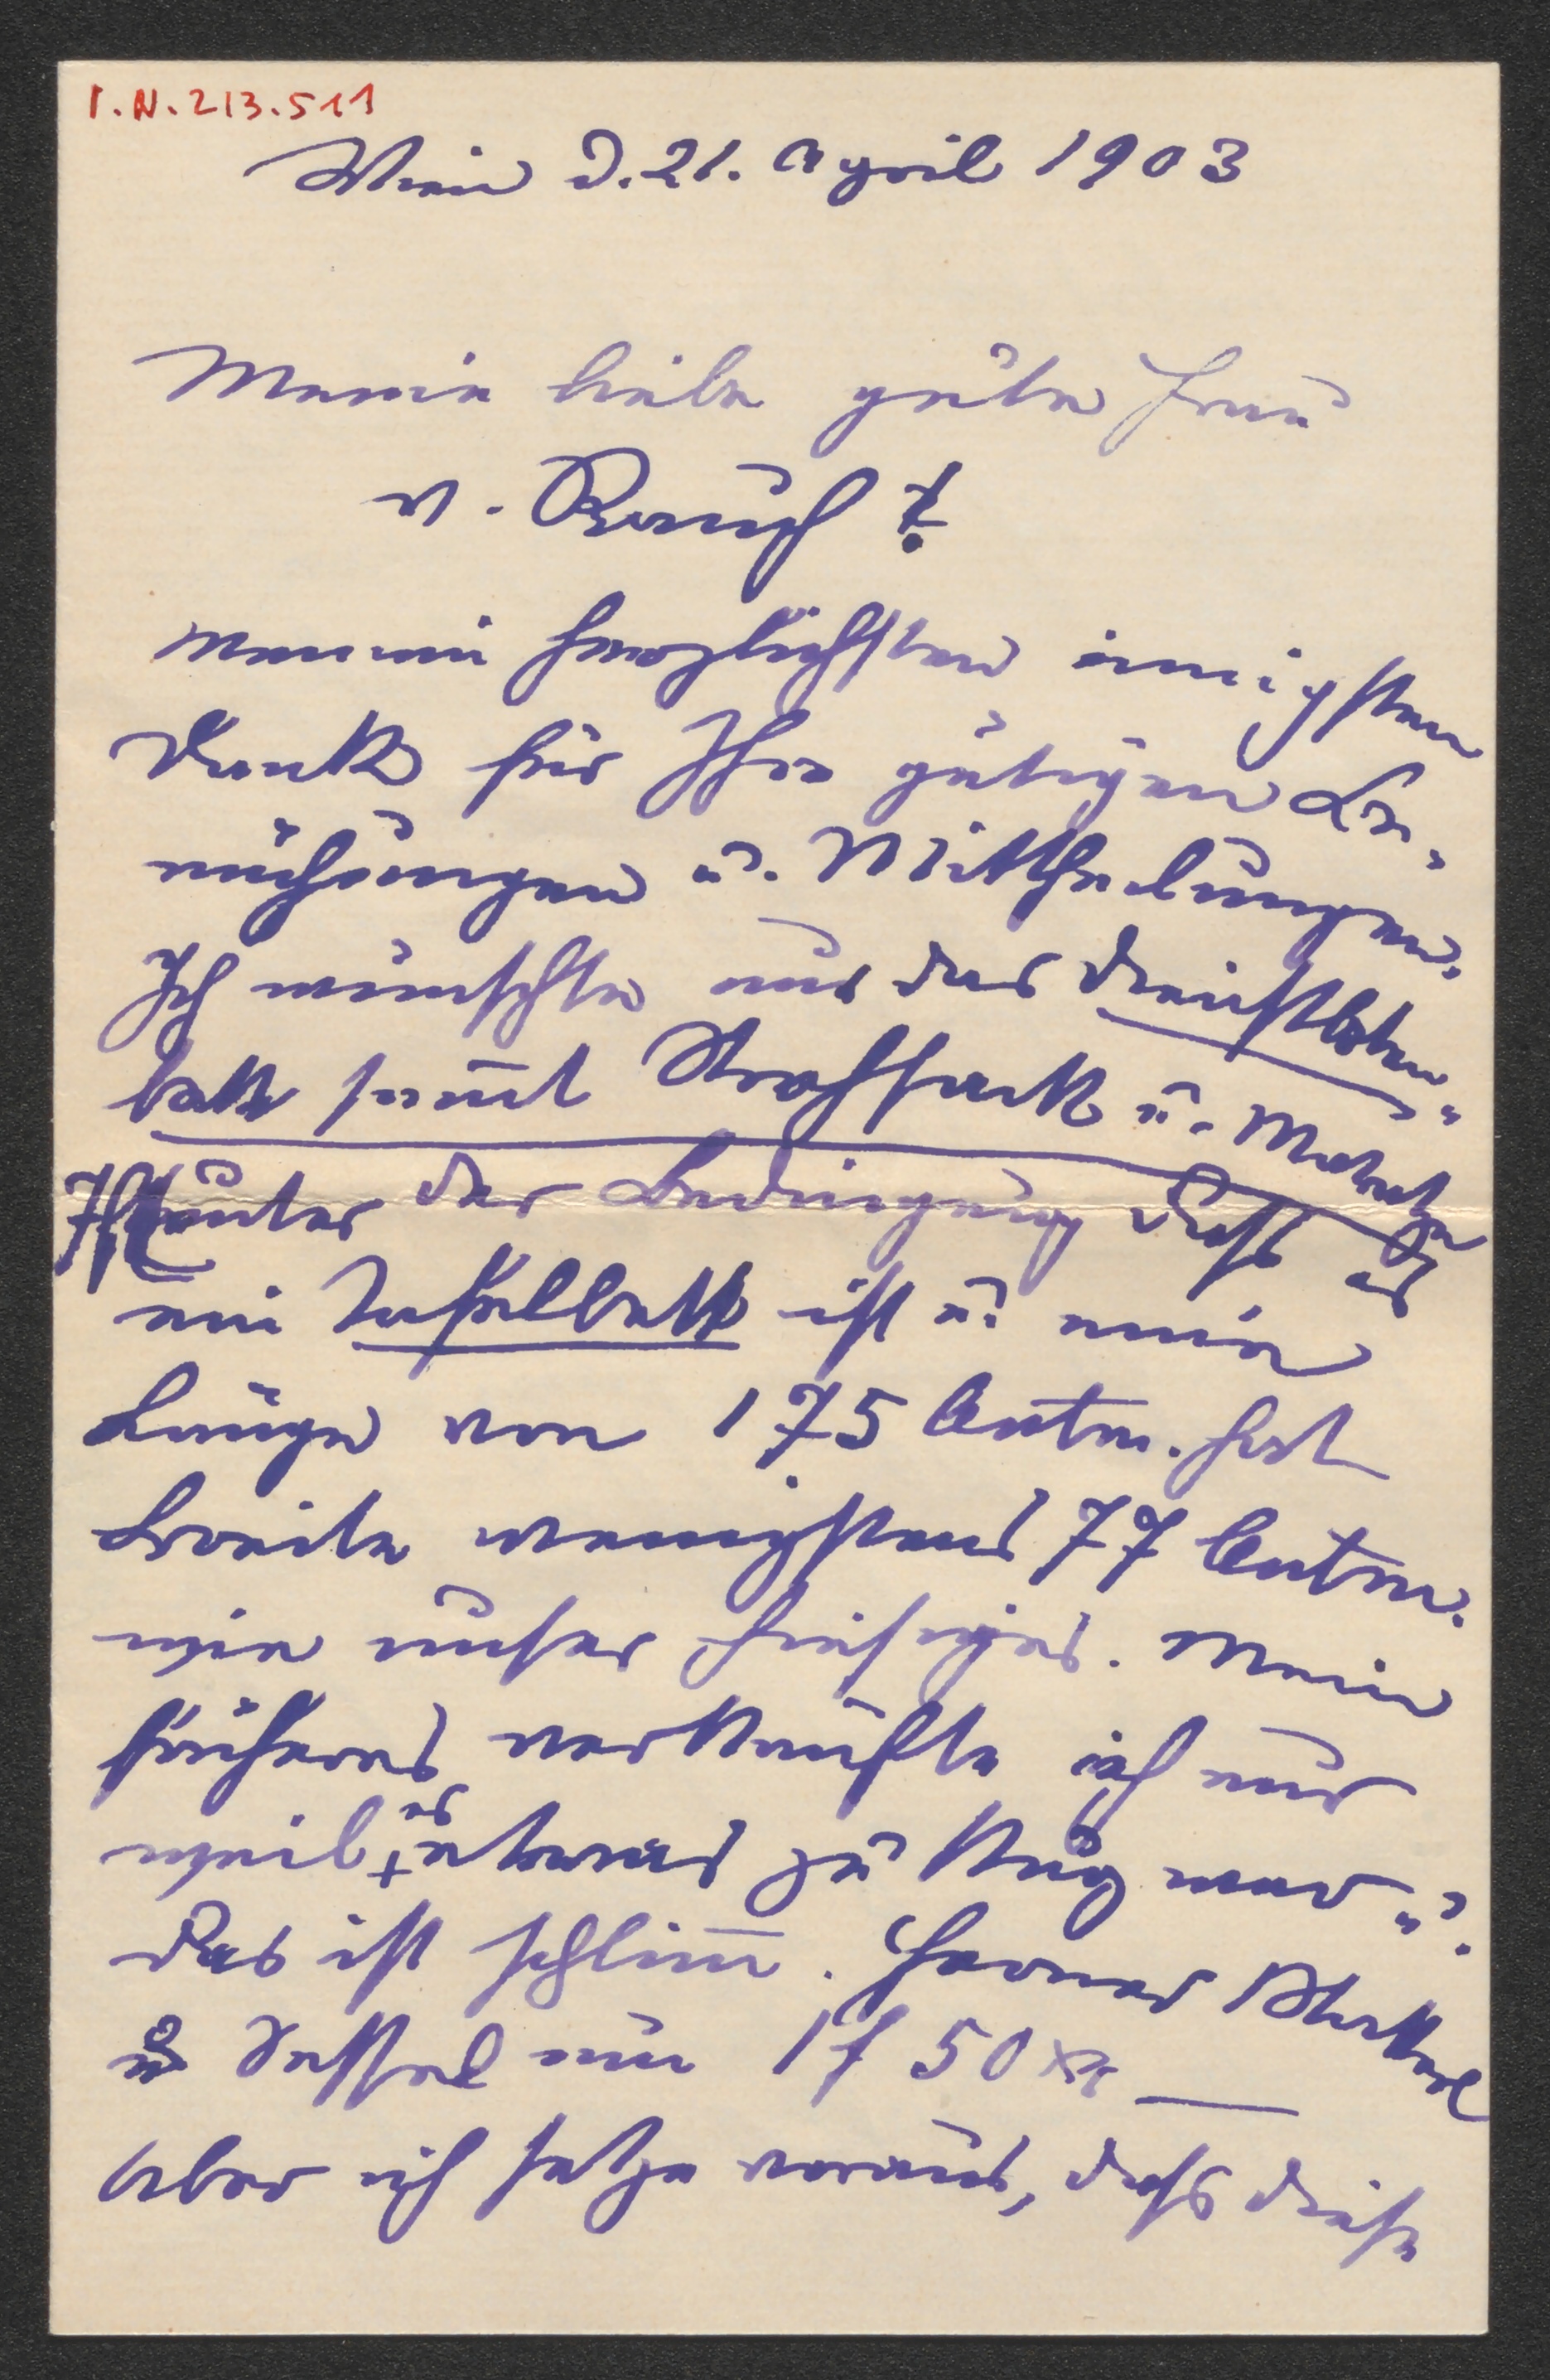 I.N. 213.511
Wien d. 21. April 1903
Meine liebe gute Frau
v. Rausch!
meinen herzlichsten innigsten
Dank für Ihre gütigen Be-
mühungen u. Mittheilungen.
Ich wünschte nur das Dienstboten-
bett samt Strohsack u. Matratze
unter der Bedingung dass es
ein Tafelbett ist u. eine
Länge von 175 Centm. hat
Breite wenigstens 77 Centm.
wie unser hiesiges. Mein
früheres verkaufte ich nur
weil es etwas zu kurz war u.
das ist schlimm. Ferner
u Sessel nur 1 f 50 xr
Aber ich setze voraus, dass diese